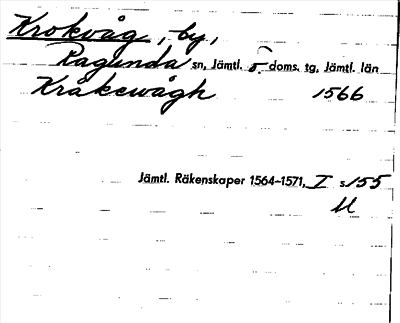 Krokvåg, by,
Ragunda sn, Jämtl. ö. doms. tg, Jämtl. län
Kråkewågh 1566
Jämtl. Räkenskaper 1564-1571, I s. 155
U